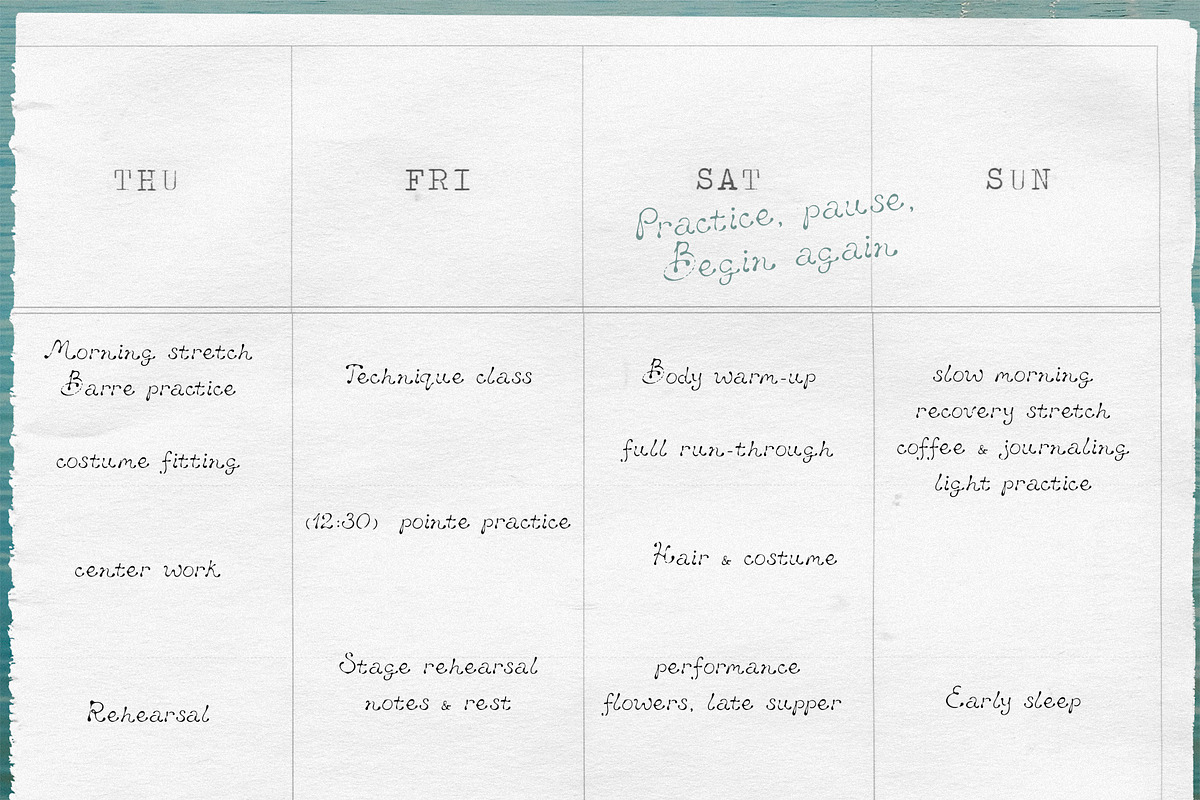 THU
FRI
SAT
SUN
Practice, pause,
Begin again
Morning stretch
Barre practice
costume fitting
center work
Rehearsal
Technique class
(12:30) pointe practice
Stage rehearsal
notes & rest
Body warm-up
full run-through
Hair & costume
performance
flowers, late supper
slow morning
recovery stretch
coffee & journaling
light practice
Early sleep